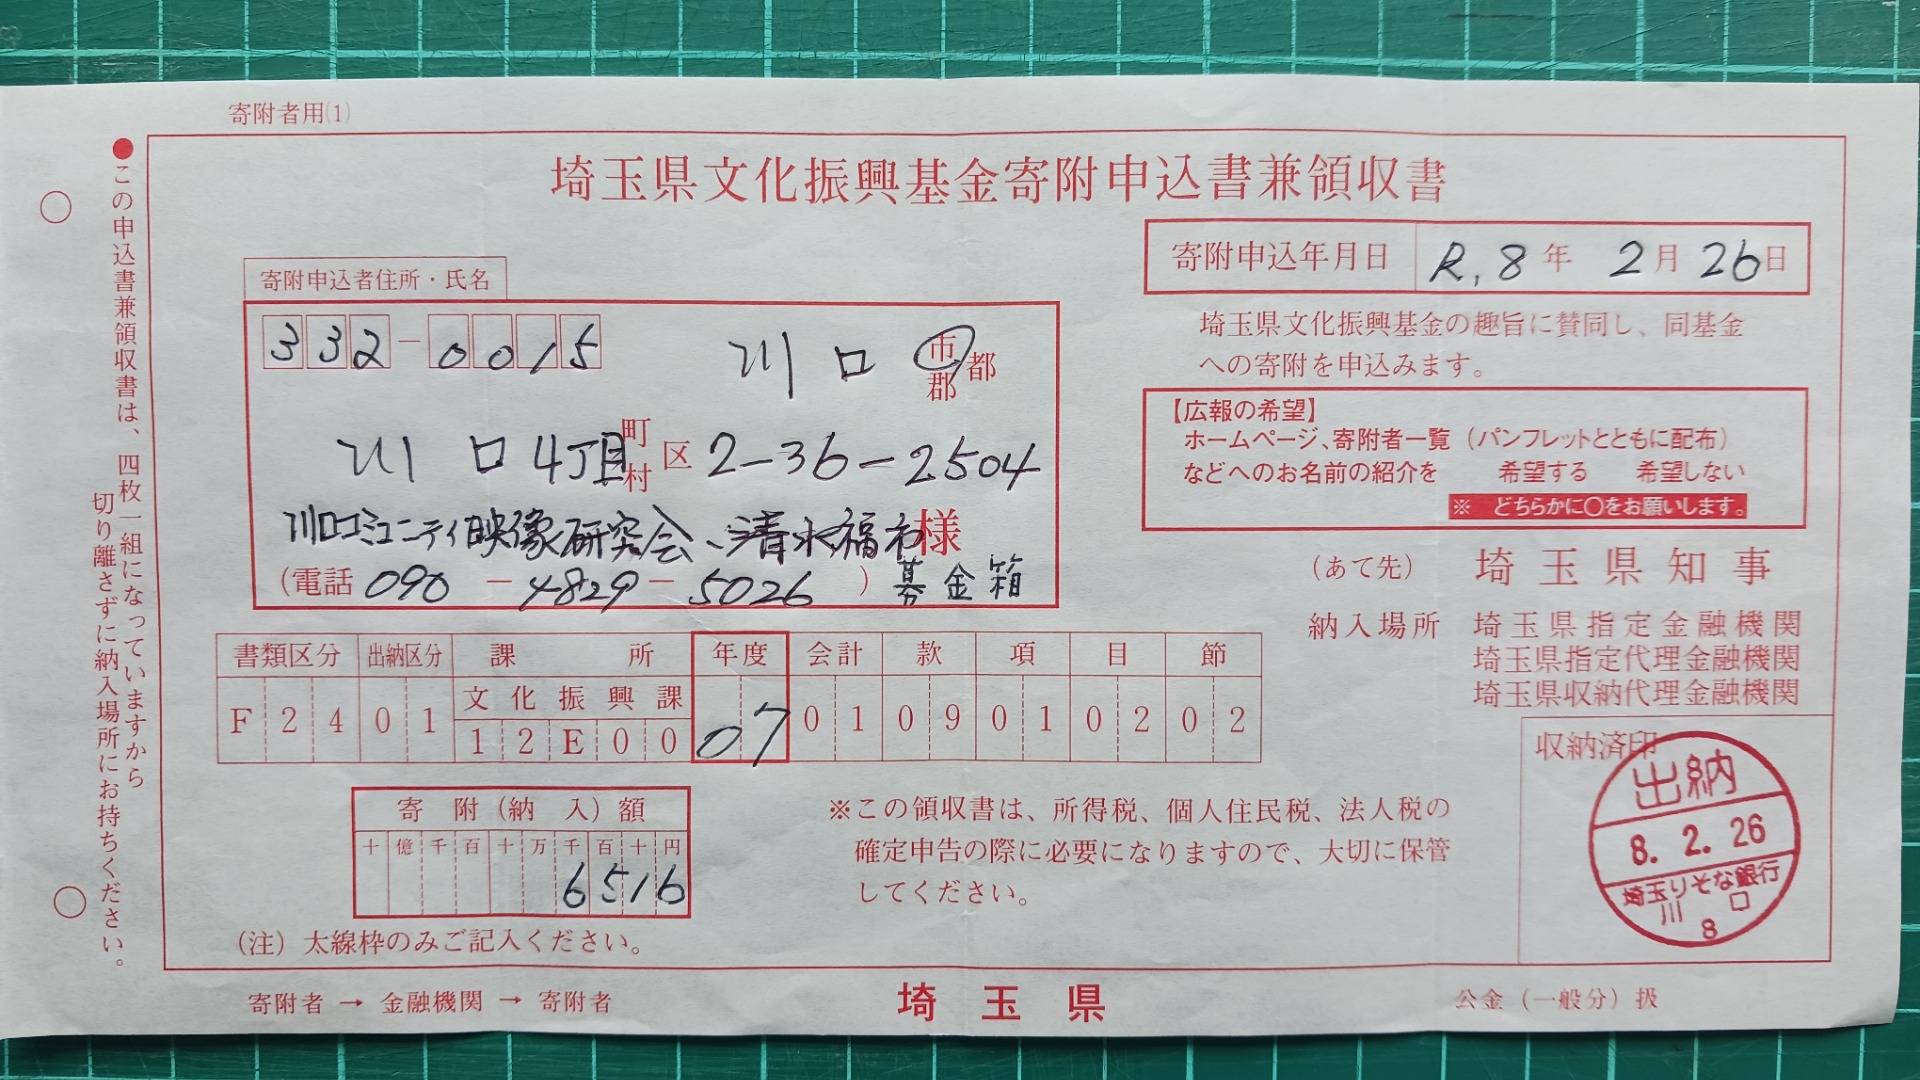 寄附者用(1)
●この申込書兼領収書は、四枚一組になっていますから
切り離さずに納入場所にお持ちください。
埼玉県文化振興基金寄附申込書兼領収書
寄附申込年月日 R.8年 2月 26日
寄附申込者住所・氏名
332-0015 川口 市 都
郡
川口4丁目 町 区 2-36-2504
村
川口コミュニティ映像研究会、清水福祉 様
(電話 090 - 4829 - 5026 ) 募金箱
埼玉県文化振興基金の趣旨に賛同し、同基金
への寄附を申込みます。
【広報の希望】
ホームページ、寄附者一覧(パンフレットとともに配布)
などへのお名前の紹介を 希望する 希望しない
※ どちらかに〇をお願いします。
(あて先) 埼玉県知事
納入場所 埼玉県指定金融機関
埼玉県指定代理金融機関
埼玉県収納代理金融機関
書類区分 出納区分 課所 年度 会計 款 項 目 節
文化振興課
F24 01 12E00 07 01 09 01 02 02
寄附(納入)額
十 億 千 百 十 万 千 百 十 円
6516
※この領収書は、所得税、個人住民税、法人税の
確定申告の際に必要になりますので、大切に保管
してください。
収納済印
出納
8. 2. 26
埼玉りそな銀行
川口
8
(注) 太線枠のみご記入ください。
寄附者 → 金融機関 → 寄附者
埼玉県
公金(一般分)扱